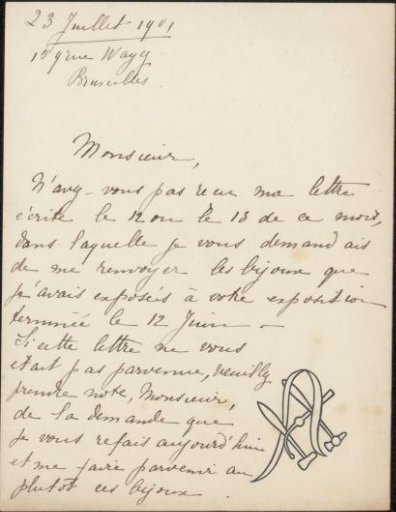 23 Juillet 1901
rue Wayy
Bruxelles
Monsieur,
N'avez-vous pas reçu ma lettre
écrite le 12 ou le 13 de ce mois,
dans laquelle je vous demandais
de me renvoyer les bijoux que
j'avais exposés à votre exposition
terminée le 12 Juin —
Si cette lettre ne vous
était pas parvenue, veuillez
prendre note, Monsieur,
de la demande que
je vous refais aujourd'hui
et me faire parvenir au
plutot ces bijoux.